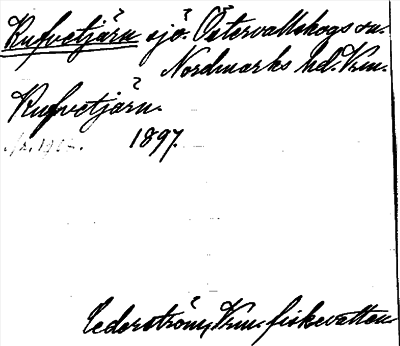 Kufvetjärn sjö. Östervallskogs sn.
Nordmarks hd. Vrm.
Kufvetjärn.
1897.
Cederström, Vrm. fiskevatten